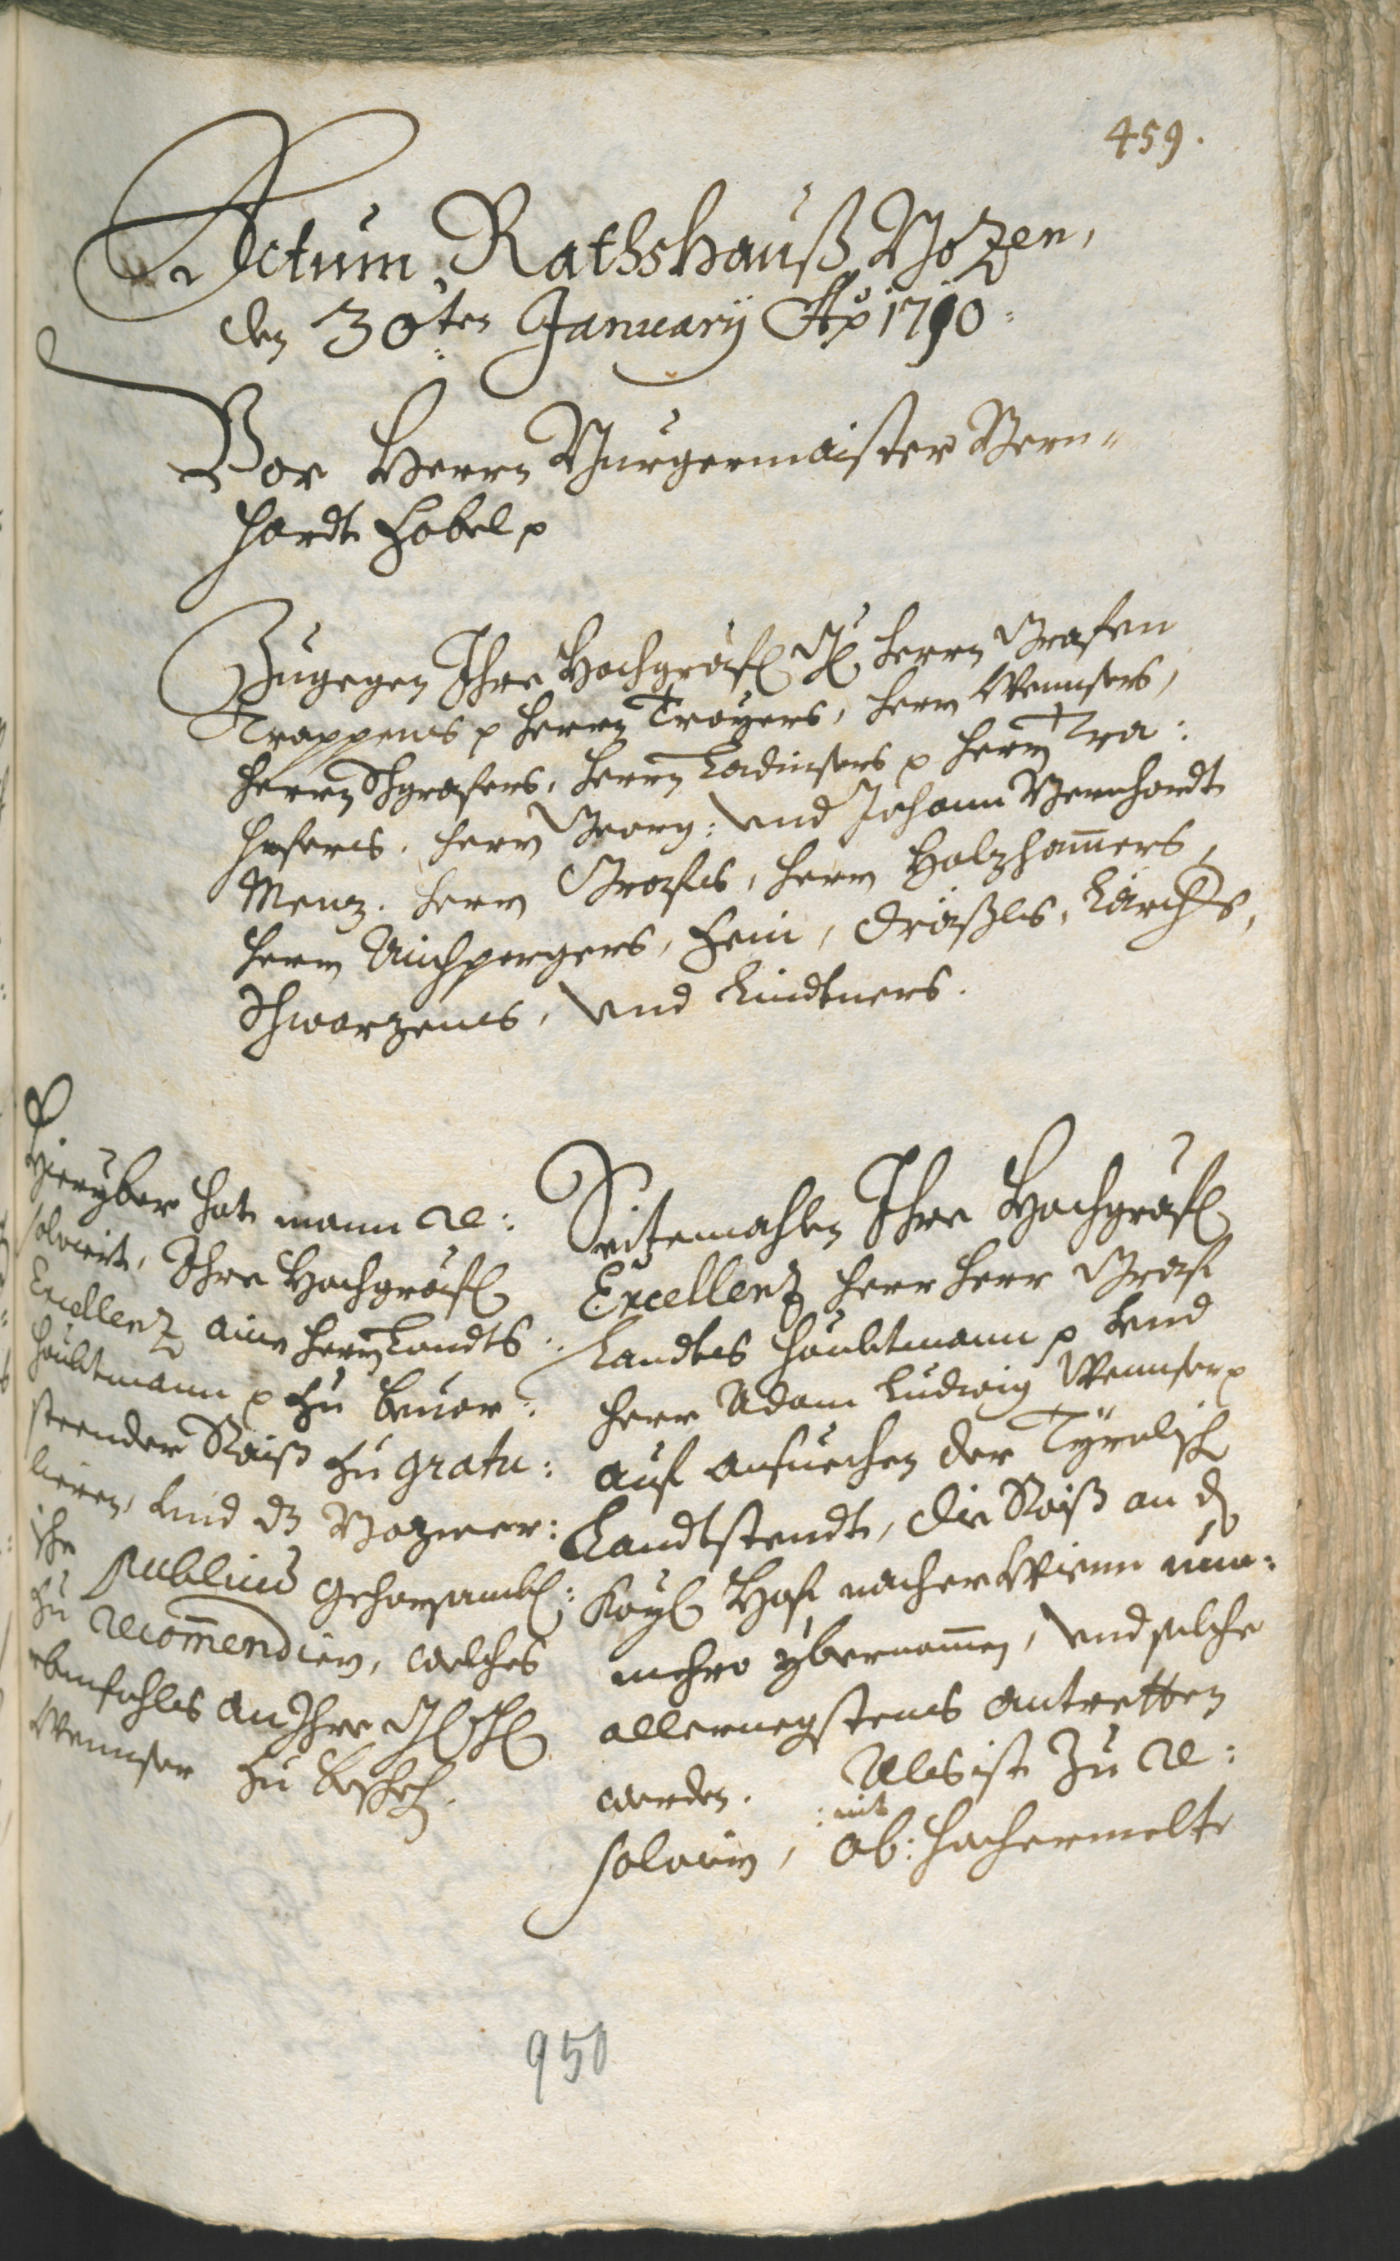 459.
Actum Rathshauß Bozen,
den 30:ten January Ao 1710:
Vor Herrn Burgermaister Bern-
hardt Zobel p
Zugegen Ihre Hochgräfl: Herrn Grafen
Trappens p Herrn Troyers, Herrn Wennsers,
Herrn Schgrafers, Herrn Ladinsers p Herrn Tra:
Herrn Georg: und Johann Bernhardt
Menz. Herrn Herrn Holzhamers,
Herrn Aichpergers, Hein, Kärchs,
Schwarzens, und Lindtners.
Hieryber hat mann re:
solviert, Ihre Hochgräfl:
Excellenz aim Herrn Landts
haubtmann p zu bevor:
steender Raiß zu gratu:
lieren, und dz Bozner:
ische Publicum gehorsambl:
zu recomendiern, welches
ebenfahls an Ihre
Wennser zu beschech:
Seitemahlen Ihre Hochgräfl:
Excellenz Herr Herr Graf
Landtes Haubtmann p und
Herr Adam Ludwig Wennser p
auf ansuechen der Tyrolisch
Landtstendt, die Raiß an d
Kayl: Hof nacher Wienn nun:
mehro ybernomen, und solche
allernegstens antretten
werden. Alß ist zu re:
solviern, :nit
ob: hochermelte
950